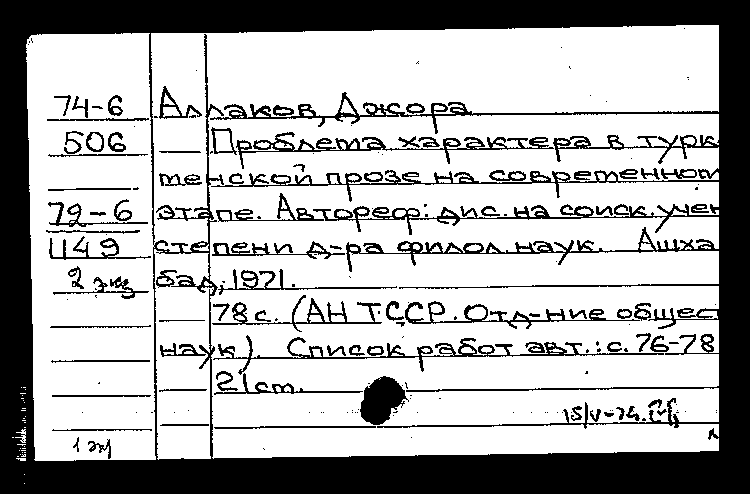 74-6 Аллаков, Джора
506 Проблема характера в турк
менской прозе на современном
72-6 этапе. Автореф: дис. на соиск. учен
1149 степени д-ра филол. наук. Ашха
2 экз бад, 1971.
78 с. (АН ТССР. Отд-ние общест
наук). Список работ авт.: с. 76-78
21 cm.
15/V-74.
1 эк